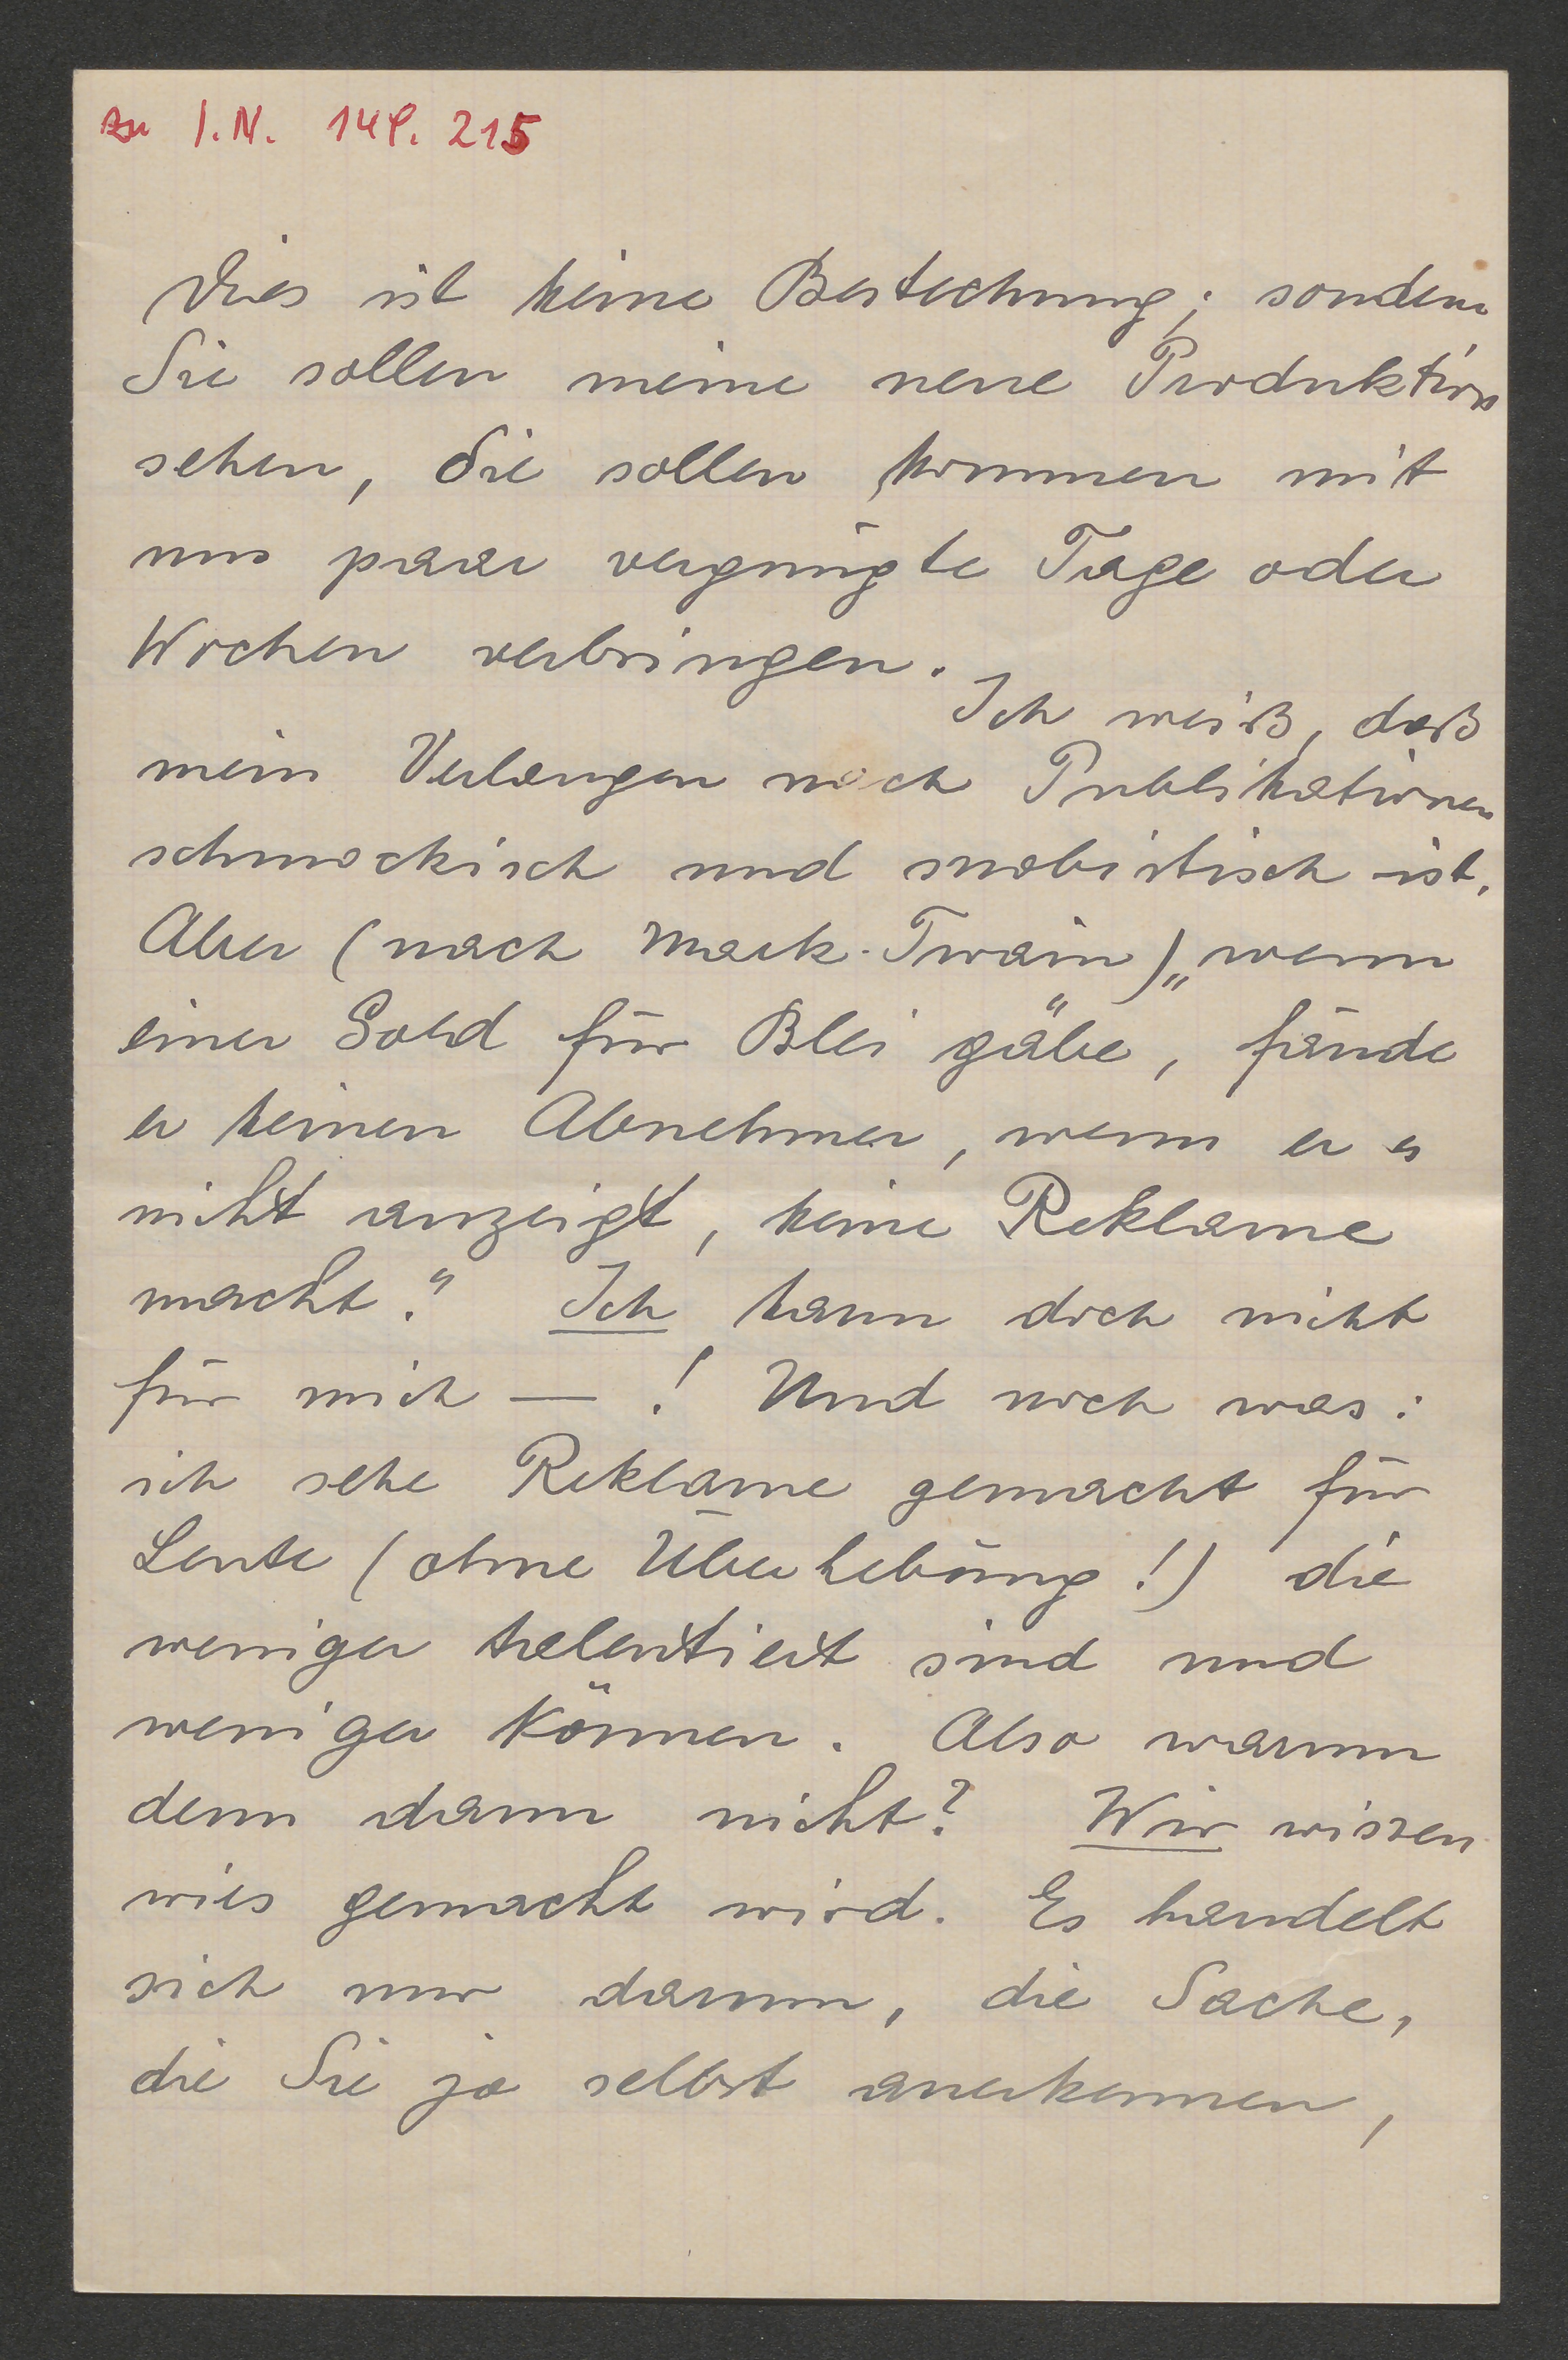 zu I.N. 149.215
Dies ist keine Bestechung; sondern
Sie sollen meine neue Produktion
sehen, Sie sollen kommen mit
uns paar vergnügte Tage oder
Wochen verbringen.
Ich weiß, daß
mein Verlangen nach Publikationen
schmockisch und snobistisch ist.
Aber (nach Mark-Twain) „wenn
einer Gold für Blei gäbe, fände
er keinen Abnehmer, wenn er es
nicht anzeigt, keine Reklame
macht.“ Ich kann doch nicht
für mich — ! Und noch was:
ich sehe Reklame gemacht für
Leute (ohne Überhebung!) die
weniger talentiert sind und
weniger können. Also warum
denn dann nicht? Wir wissen
wies gemacht wird. Es handelt
sich nur darum, die Sache,
die Sie ja selbst anerkennen,